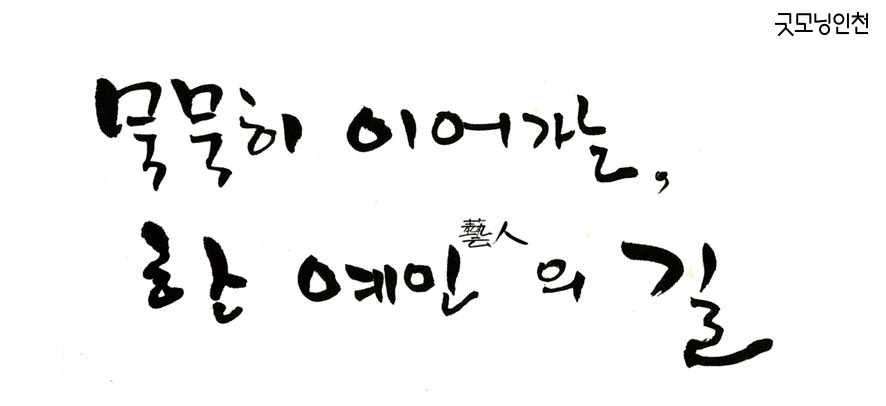 굿모닝인천
묵묵히 이어가는,
한 예인藝人의 길